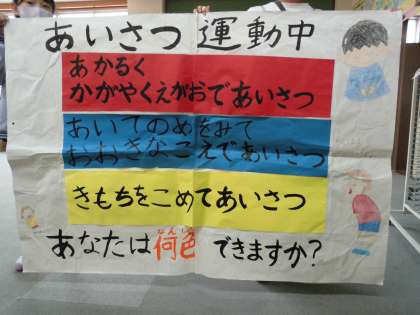 あいさつ運動中
あかるく
かがやくえがおであいさつ
あいてのめをみて
おおきなこえであいさつ
きもちをこめてあいさつ
なんしょく
あなたは何色できますか?